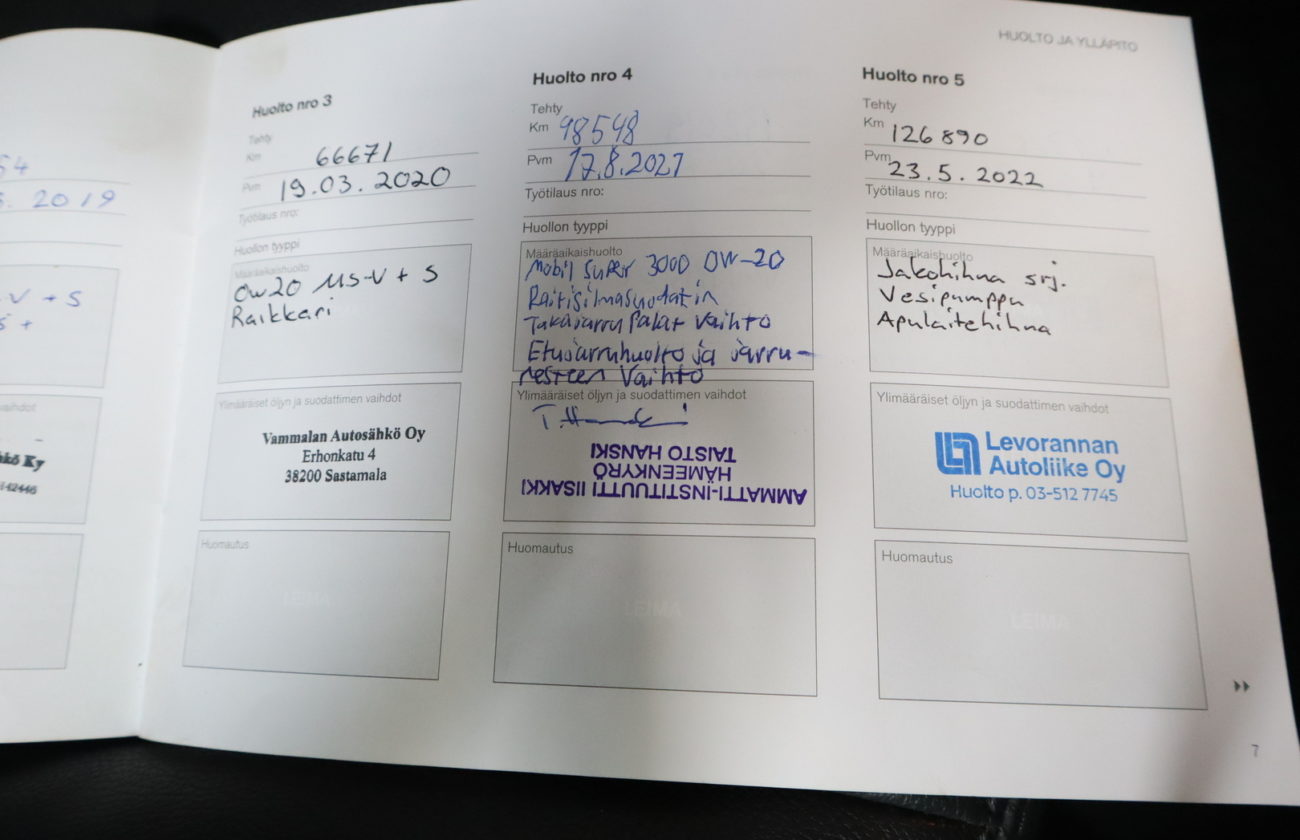 HUOLTO JA YLLÄPITO
54
2019
-V + S
+
vaihdot
hkö Ky
Huolto nro 3
Tehty
Km 66671
Pvm 19.03.2020
Työtilaus nro:
Huollon tyyppi
Määräaikaishuolto
0W20 MS-V + S
Raikkari
Ylimääräiset öljyn ja suodattimen vaihdot
Vammalan Autosähkö Oy
Erhonkatu 4
38200 Sastamala
Huomautus
LEIMA
Huolto nro 4
Tehty
Km 98548
Pvm 17.8.2021
Työtilaus nro:
Huollon tyyppi
Määräaikaishuolto
Mobil Super 3000 0W-20
Raitisilmasuodatin
Takajarru Palat Vaihto
Etujarruhuolto ja jarru-
nesteen Vaihto
Ylimääräiset öljyn ja suodattimen vaihdot
AMMATTI-INSTITUUTTI IISAKKI
HÄMEENKYRÖ
TAISTO HANSKI
Huomautus
LEIMA
Huolto nro 5
Tehty
Km 126890
Pvm 23.5.2022
Työtilaus nro:
Huollon tyyppi
Määräaikaishuolto
Jakohihna srj.
Vesipumppu
Apulaitehihna
Ylimääräiset öljyn ja suodattimen vaihdot
Levorannan
Autoliike Oy
Huolto p. 03-512 7745
Huomautus
LEIMA
7